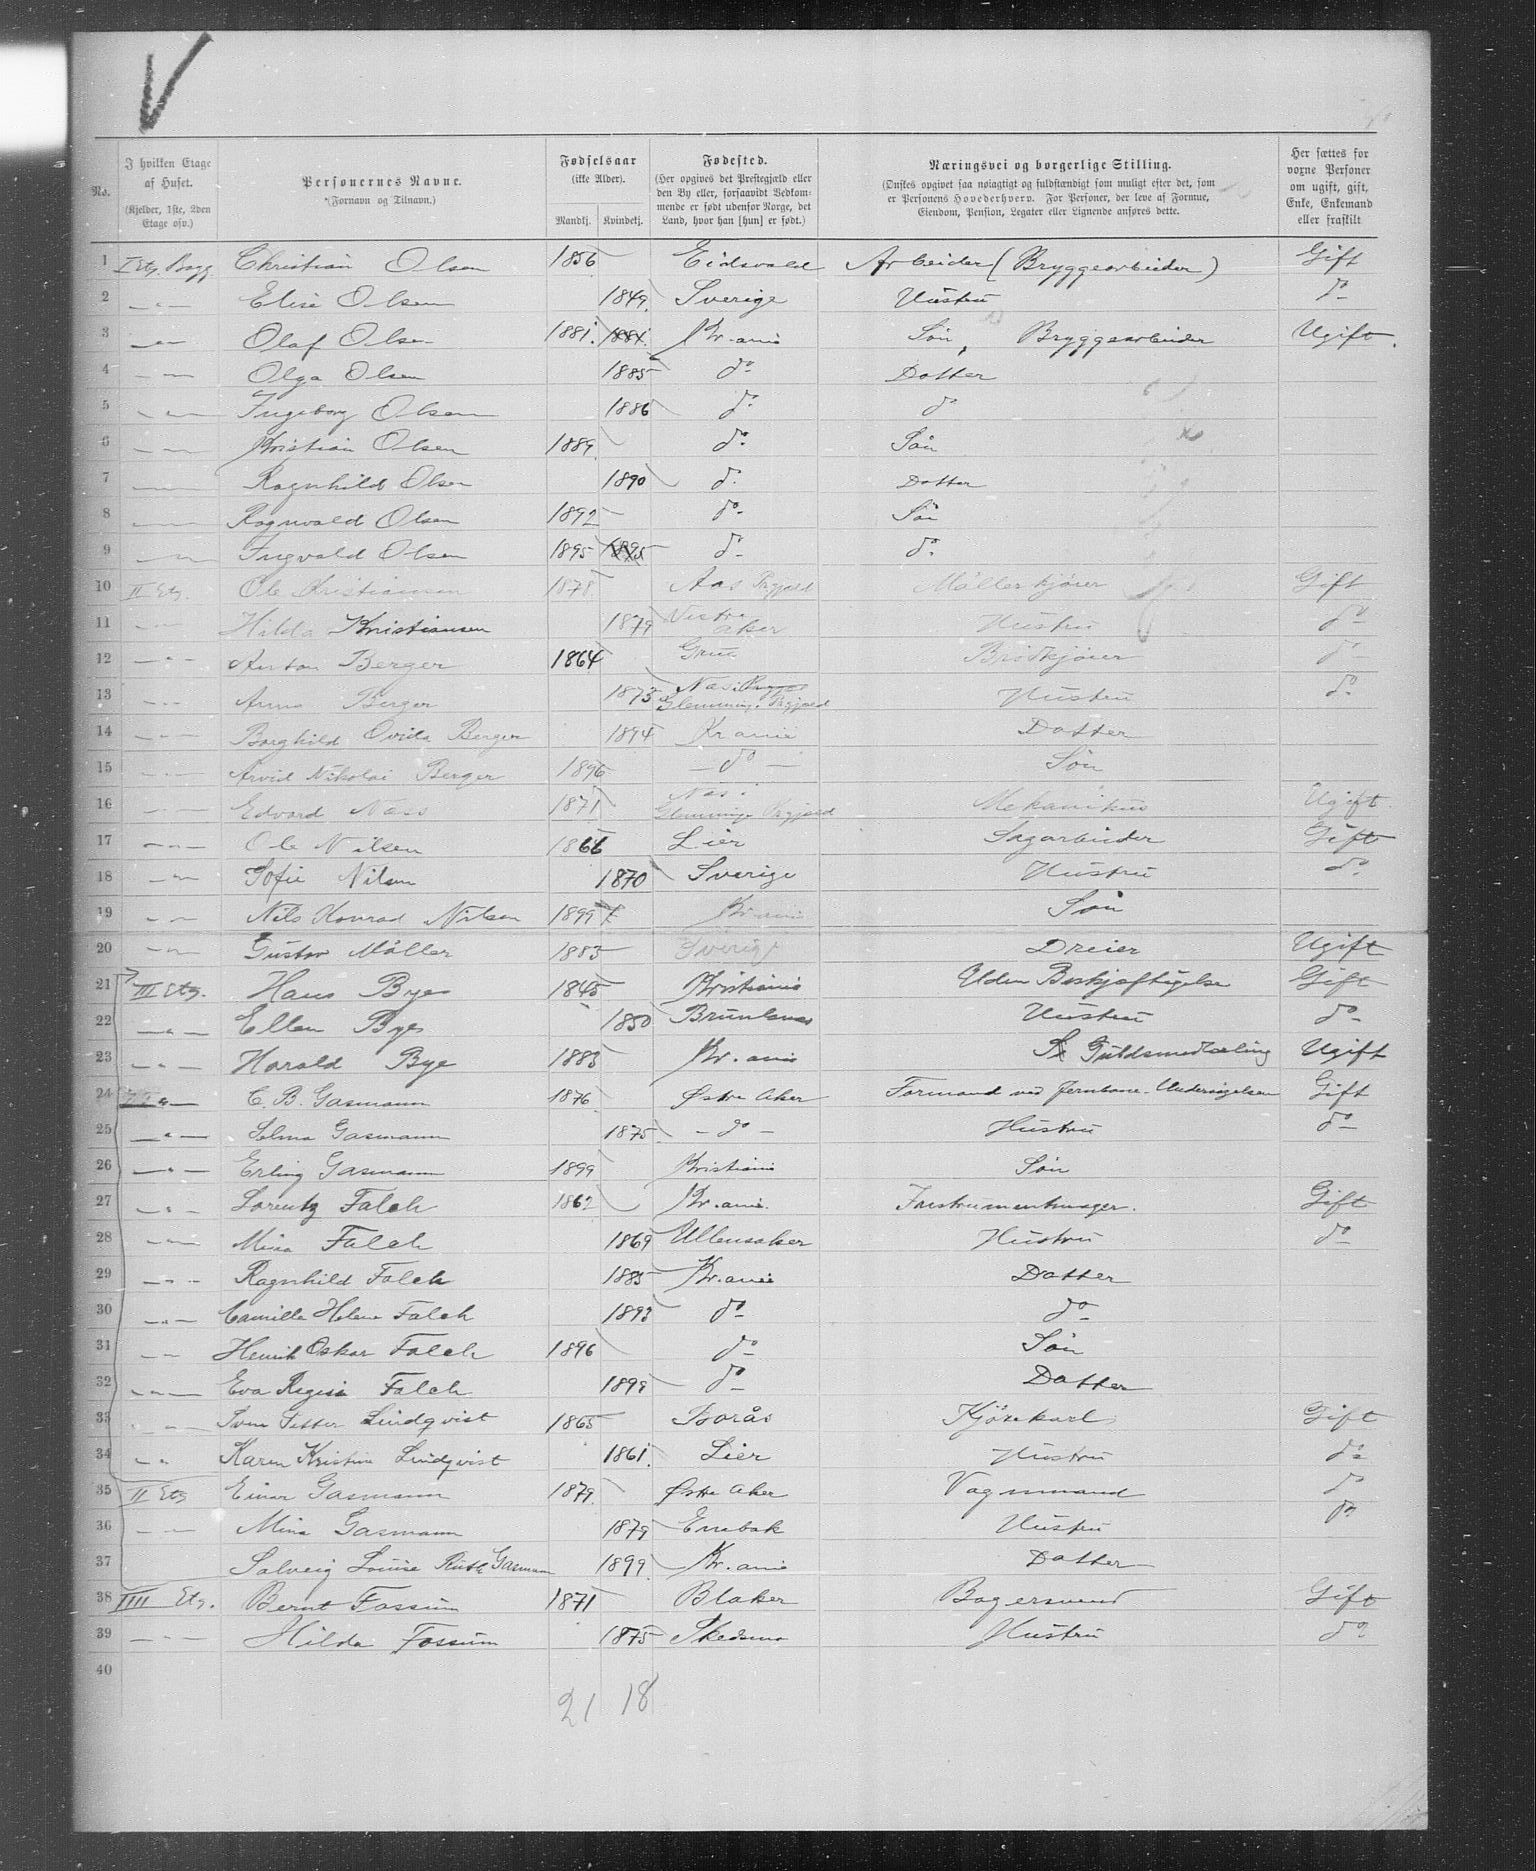 V
No.
I hvilken Etage af Huset.
(Kjelder, 1ste, 2den Etage osv.)
Personernes Navne.
(Fornavn og Tilnavn.)
Fødselsaar
(ikke Alder).
Mandkj. Kvindekj.
Fødested.
(Her opgives det Prestegjæld eller den By eller, forsaavidt Vedkommende er født udenfor Norge, det Land, hvor han [hun] er født.)
Næringsvei og borgerlige Stilling.
(Ønskes opgivet saa nøiagtigt og fuldstændigt som muligt efter det, som er Personens Hovederhverv. For Personer, der leve af Formue, Eiendom, Pension, Legater eller Lignende anføres dette.
Her sættes for voxne Personer om ugift, gift, Enke, Enkemand eller fraskilt
1 I Etg. Bagg Christian Olsen 1856 Eidsvold Arbeider (Bryggearbeider) Gift
2 — " — Elise Olsen 1849 Sverige Hustru do
3 — " — Olaf Olsen 1881 1881 Kr.ania Søn, Bryggearbeider Ugift.
4 — " — Olga Olsen 1885 do Datter
5 — " — Ingeborg Olsen 1886 do do
6 — " — Kristian Olsen 1889 do Søn
7 — " — Ragnhild Olsen 1890 do Datter
8 — " — Ragnvald Olsen 1892 do Søn
9 — " — Ingvald Olsen 1895 1895 do do
10 II Etg. Ole Kristiansen 1878 Aas Prgjæld Møllerkjører Gift
11 — " — Hilda Kristiansen 1879 Vestre Aker Hustru do
12 — " — Anton Berger 1864 Grue Brødkjører do
13 — " — Anna Berger 1873 Næs i Glemminge Prgjæld Hustru do
14 — " — Borghild Ovida Berger 1894 Kr ania Datter
15 — " — Arvid Nikolai Berger 1896 — do — Søn
16 — " — Edvard Næss 1871 Næs i Glemminge Prgjæld Mekanikus Ugift
17 — " — Ole Nilsen 1866 Lier Sagarbeider Gift
18 — " — Sofie Nilsen 1870 Sverige Hustru do
19 — " — Nils Konrad Nilsen 1899 Kr ania Søn
20 — " — Gustav Møller 1883 Sverige Dreier Ugift
21 III Etg. Hans Bye 1845 Kristiania Uden Beskjæftigelse Gift
22 — " — Ellen Bye 1850 Brunlanæs Hustru do
23 — " — Harald Bye 1883 Kr.ania Guldsmedlæling Ugift
24 — " — C. B. Gasmann 1876 Østre Aker Formand ved Jernbane-Undersøgelsen Gift
25 — " — Selma Gasmann 1875 — do — Hustru do
26 — " — Erling Gasmann 1899 Kristiania Søn
27 — " — Lorentz Falch 1862 Kr.ania. Instrumentmager. Gift
28 — " — Mina Falch 1869 Ullensaker Hustru do
29 — " — Ragnhild Falch 1885 Kr.ania Datter
30 — " — Camilla Helene Falch 1893 do do
31 — " — Henrik Oskar Falch 1896 do Søn
32 — " — Eva Regine Falch 1899 do Datter
33 — " — Sven Petter Lindqvist 1865 Borås Kjørekarl Gift
34 — " — Karen Kristine Lindqvist 1861 Lier Hustru do
35 II Etg Einar Gasmann 1879 Østre Aker Vognmand do
36 — " — Mina Gasmann 1879 Enebak Hustru do
37 Solveig Louise Ruth Gasmann 1899 Kr.ania Datter
38 IIII Etg. Bernt Fossum 1871 Blaker Bagersvend Gift
39 — " — Hilda Fossum 1875 Skedsmo Hustru do
40
21 18